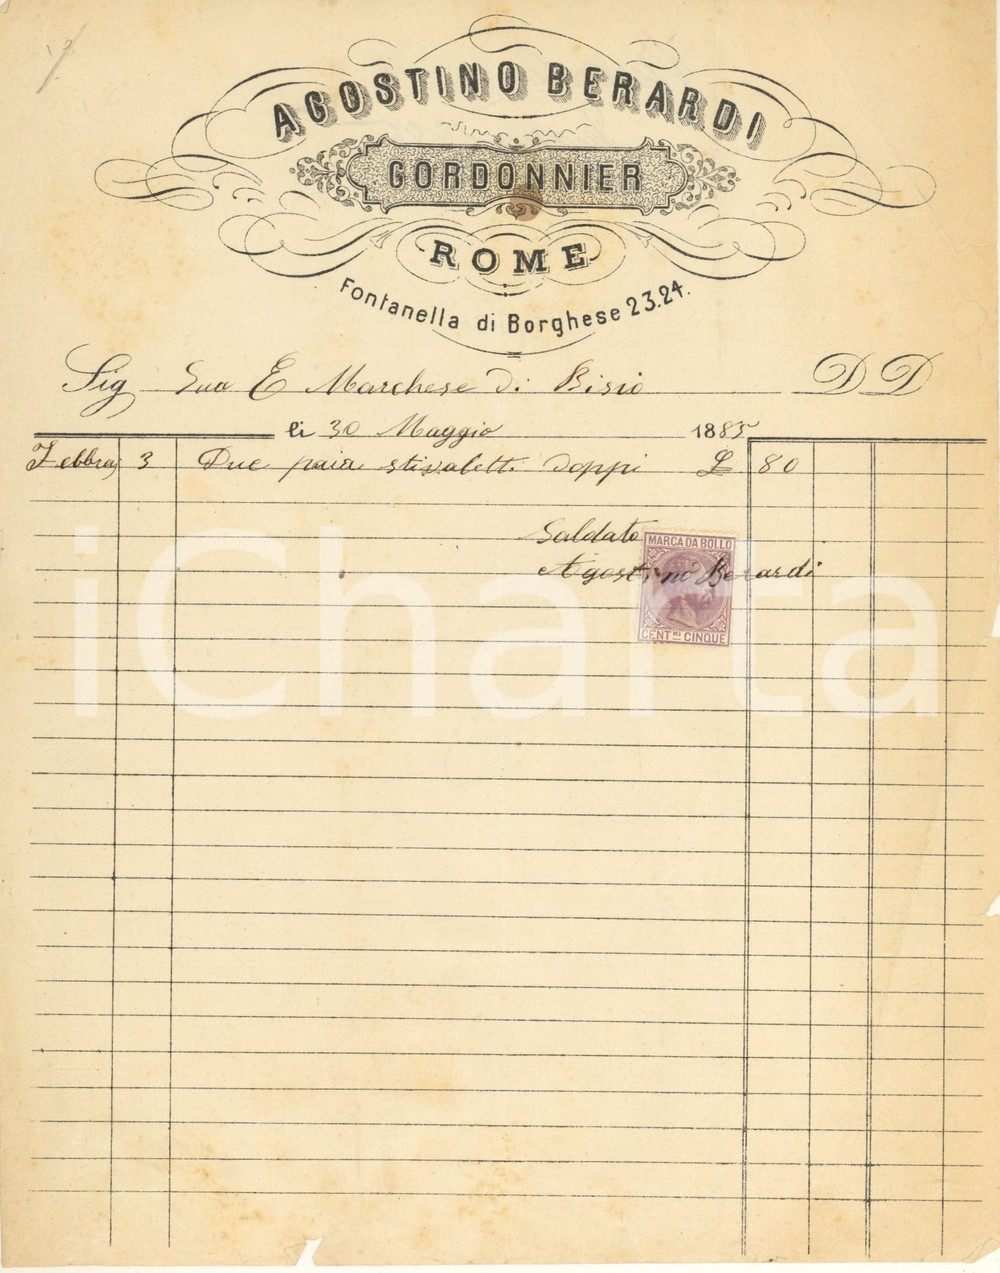 AGOSTINO BERARDI
CORDONNIER
ROME
Fontanella di Borghese 23.24.
Sig Sua E Marchese Di Bisio DD
li 30 Maggio 1885
Febbraj 3 Due paia stivaletti doppi £ 80
Saldato
Agostino Berardi
MARCA DA BOLLO
CENT.MI CINQUE
iCharta